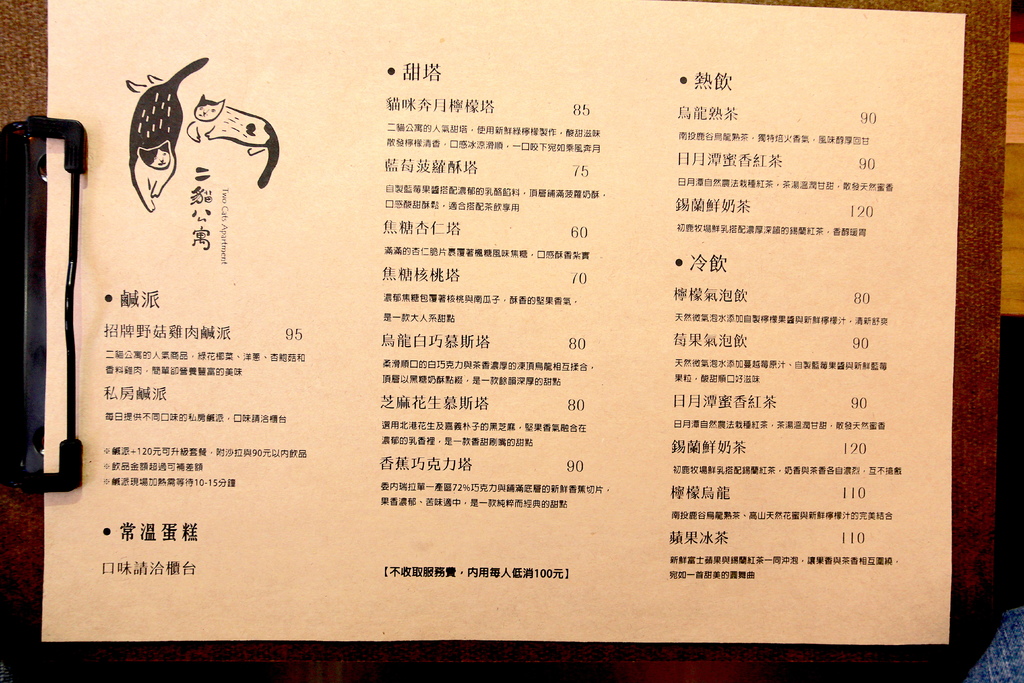 二貓公寓
Two Cats Apartment
• 鹹派
招牌野菇雞肉鹹派 95
二貓公寓的人氣商品，綠花椰菜、洋蔥、杏鮑菇和
香料雞肉，簡單卻營養豐富的美味
私房鹹派
每日提供不同口味的私房鹹派，口味請洽櫃台
※鹹派+120元可升級套餐，附沙拉與90元以內飲品
※飲品金額超過可補差額
※鹹派現場加熱需等待10-15分鐘
• 常溫蛋糕
口味請洽櫃台
• 甜塔
貓咪奔月檸檬塔 85
二貓公寓的人氣甜塔，使用新鮮綠檸檬製作，酸甜滋味
散發檸檬清香，口感冰涼滑順，一口咬下宛如乘風奔月
藍莓菠蘿酥塔 75
自製藍莓果醬搭配濃郁的乳酪餡料，頂層鋪滿菠蘿奶酥，
口感酸甜酥鬆，適合搭配茶飲享用
焦糖杏仁塔 60
滿滿的杏仁脆片裹覆著楓糖風味焦糖，口感酥香紮實
焦糖核桃塔 70
濃郁焦糖包覆著核桃與南瓜子，酥香的堅果香氣，
是一款大人系甜點
烏龍白巧慕斯塔 80
柔滑順口的白巧克力與茶香濃厚的凍頂烏龍相互揉合，
頂層以黑糖奶酥點綴，是一款餘韻深厚的甜點
芝麻花生慕斯塔 80
選用北港花生及嘉義朴子的黑芝麻，堅果香氣融合在
濃郁的乳香裡，是一款香甜刷嘴的甜點
香蕉巧克力塔 90
委內瑞拉單一產區72%巧克力與鋪滿底層的新鮮香蕉切片，
果香濃郁、苦味適中，是一款純粹而經典的甜點
【不收取服務費，內用每人低消100元】
• 熱飲
烏龍熟茶 90
南投鹿谷烏龍熟茶，獨特焙火香氣，風味醇厚回甘
日月潭蜜香紅茶 90
日月潭自然農法栽種紅茶，茶湯溫潤甘甜，散發天然蜜香
錫蘭鮮奶茶 120
初鹿牧場鮮乳搭配濃厚深韻的錫蘭紅茶，香醇暖胃
• 冷飲
檸檬氣泡飲 80
天然微氣泡水添加自製檸檬果醬與新鮮檸檬汁，清新舒爽
莓果氣泡飲 90
天然微氣泡水添加蔓越莓原汁、自製藍莓果醬與新鮮藍莓
果粒，酸甜順口好滋味
日月潭蜜香紅茶 90
日月潭自然農法栽種紅茶，茶湯溫潤甘甜，散發天然蜜香
錫蘭鮮奶茶 120
初鹿牧場鮮乳搭配錫蘭紅茶，奶香與茶香各自濃烈，互不搶戲
檸檬烏龍 110
南投鹿谷烏龍熟茶、高山天然花蜜與新鮮檸檬汁的完美結合
蘋果冰茶 110
新鮮富士蘋果與錫蘭紅茶一同沖泡，讓果香與茶香相互圍繞，
宛如一首甜美的圓舞曲